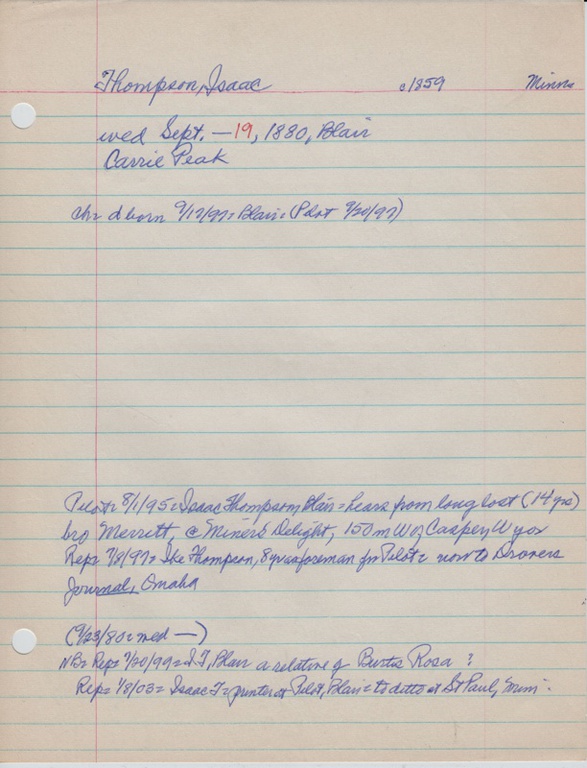 Thompson, Isaac c1859 Minns
wed Sept. — 19, 1880, Blair
Carrie Peak
ch= d born 9/17/97= Blair= (Pilot 9/20/97)
Pilot= 8/1/95= Isaac Thompson, Blair= hears from long lost (14 yrs)
bro Merrett, @ Miners' Delight, 150 m W of Casper, Wyo
Rep= 7/9/97= Ike Thompson, 8 yrs foreman for Pilot= now to Drovers
Journal, Omaha
(9/23/80= wed —)
NB= Rep= 7/20/99= I T, Blair a relative of Burtis Rosa?
Rep= 1/8/03= Isaac T= printer at Pilot, Blair= to ditto at St Paul, Minn.